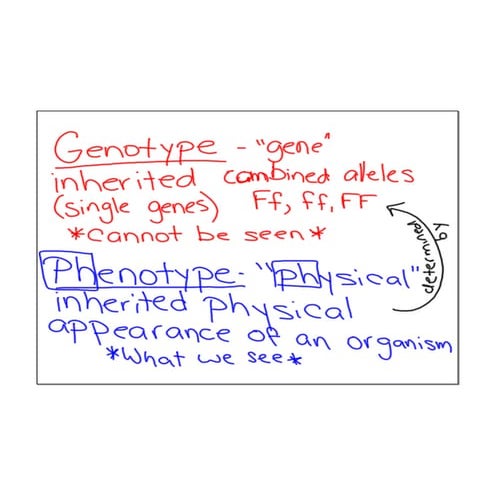 Genotype - "gene"
inherited combined alleles
(single genes) Ff, ff, FF
*Cannot be seen*
determined by
Phenotype - "physical"
inherited Physical
appearance of an organism
*What we see*